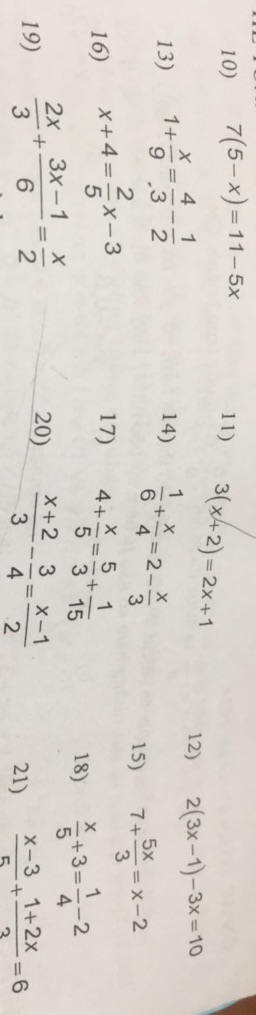 10) 7(5-x)=11-5x
11) 3(x+2)=2x+1
12) 2(3x-1)-3x=10
13) 1+x/9=4/3-1/2
14) 1/6+x/4=2-x/3
15) 7+5x/3=x-2
16) x+4=2/5x-3
17) 4+x/5=5/3+1/15
18) x/5+3=1/4-2
19) 2x/3+3x-1/6=x/2
20) x+2/3-3/4=x-1/2
21) x-3/5+1+2x/3=6